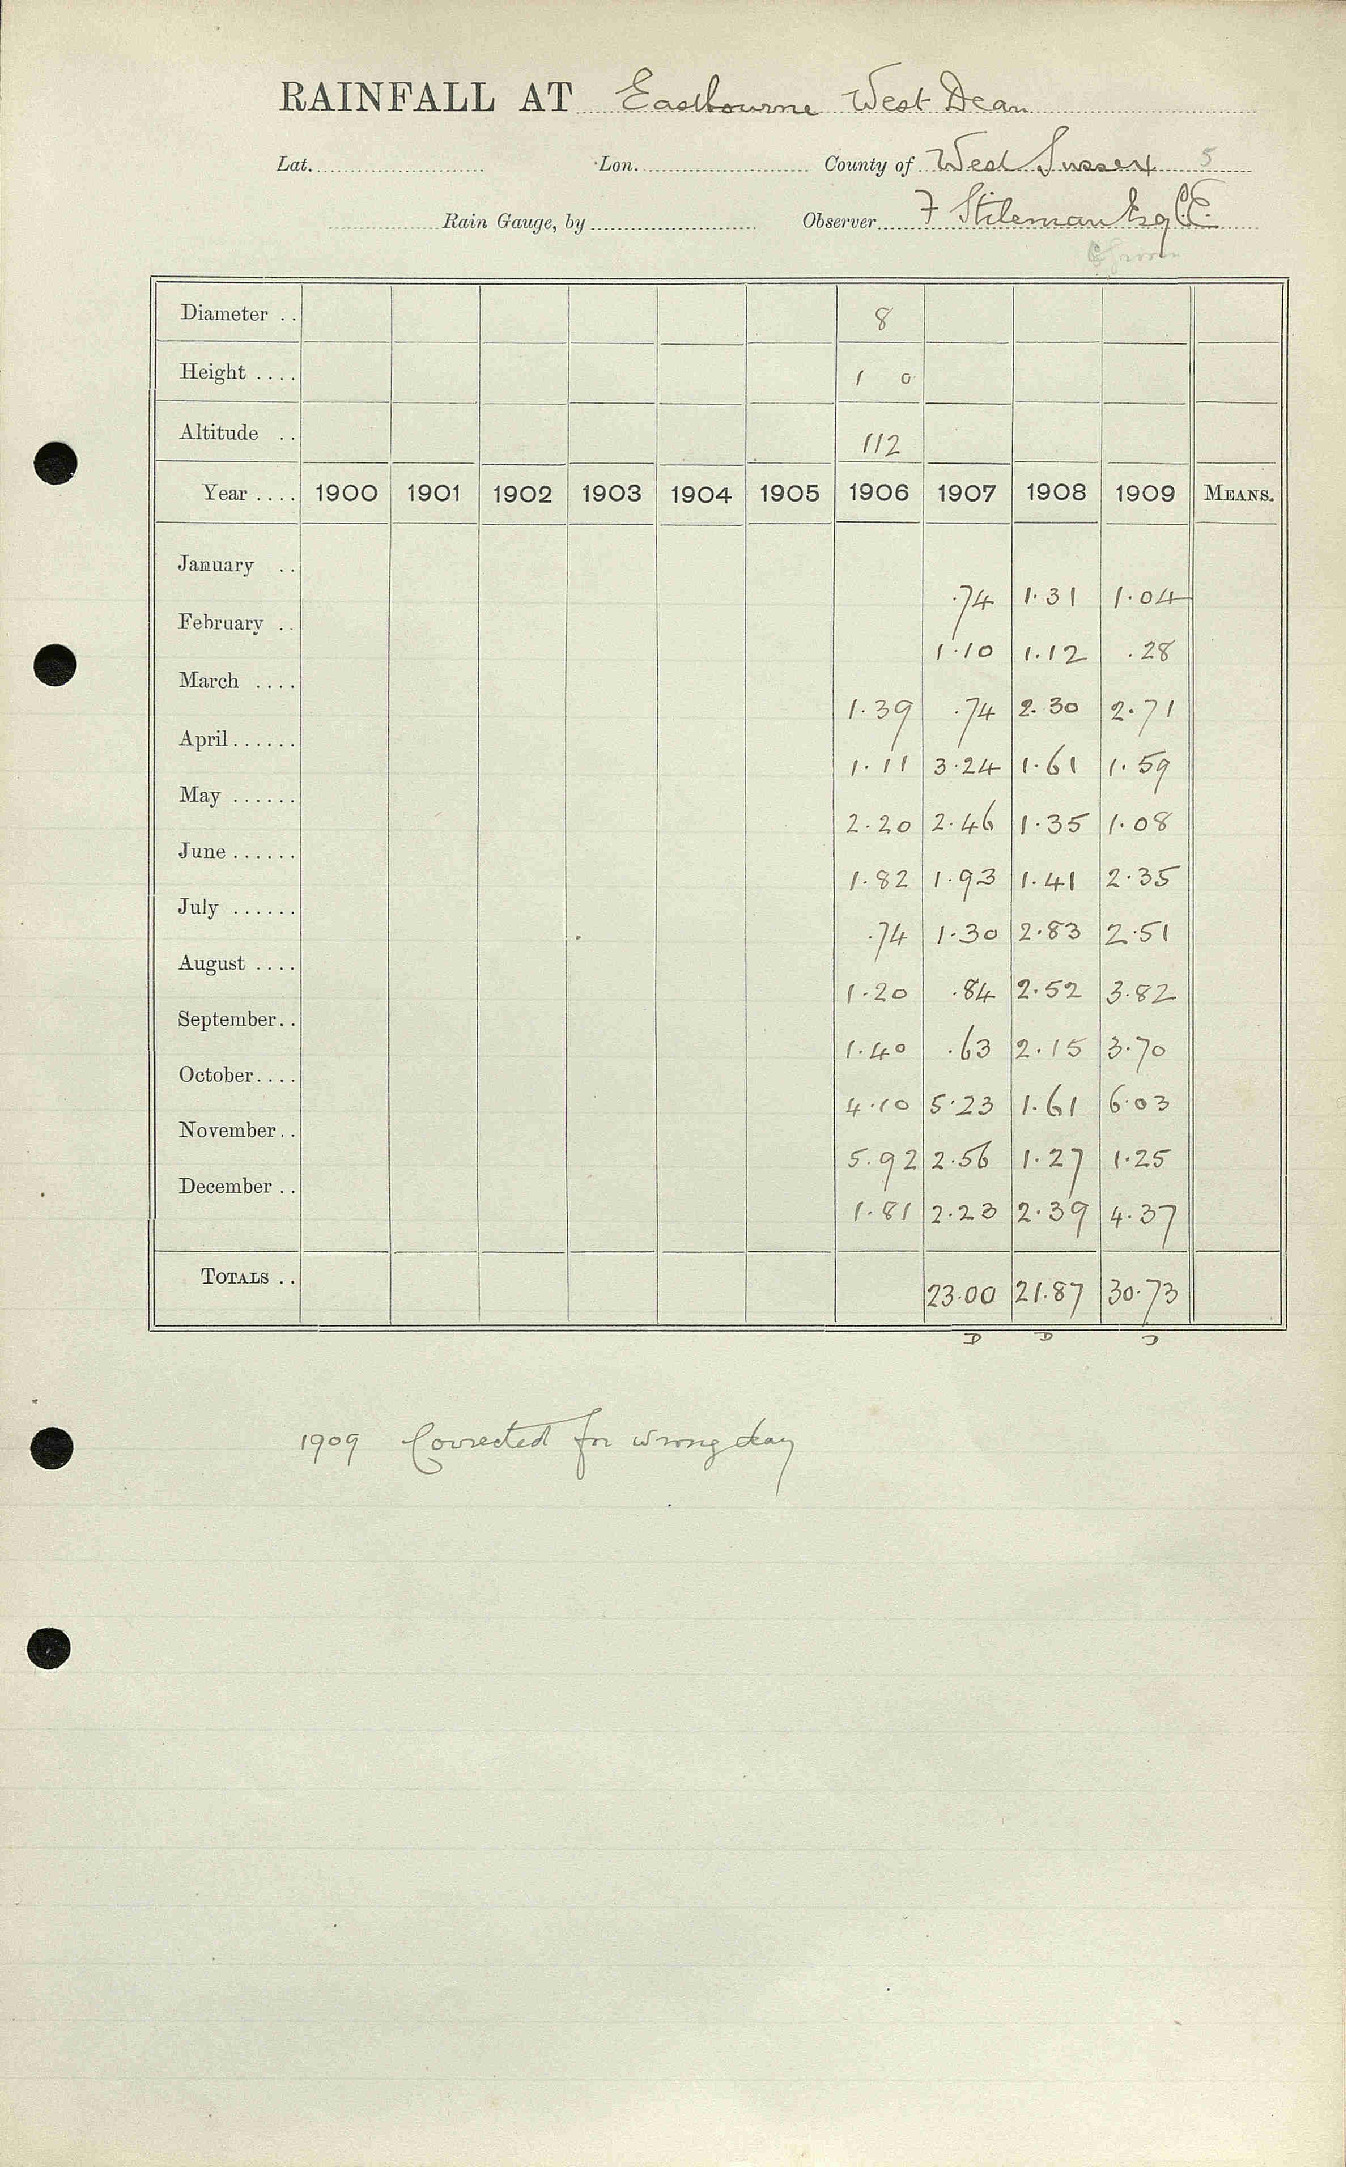 RAINFALL AT Eastbourne West Dean
Lat. Lon. County of West Sussex 5
Rain Gauge, by Observer F Stileman Esq C.E.
Diameter .. 8
Height .... 1 0
Altitude .. 112
Year .... 1900 1901 1902 1903 1904 1905 1906 1907 1908 1909 MEANS.
January .. .74 1.31 1.04
February .. 1.10 1.12 .28
March .... 1.39 .74 2.30 2.71
April ...... 1.11 3.24 1.61 1.59
May ...... 2.20 2.46 1.35 1.08
June ...... 1.82 1.93 1.41 2.35
July ...... .74 1.30 2.83 2.51
August .... 1.20 .84 2.52 3.82
September .. 1.40 .63 2.15 3.70
October .... 4.10 5.23 1.61 6.03
November .. 5.92 2.56 1.27 1.25
December .. 1.81 2.23 2.39 4.37
TOTALS .. 23.00 21.87 30.73
D D D
1909 Corrected for wrong day